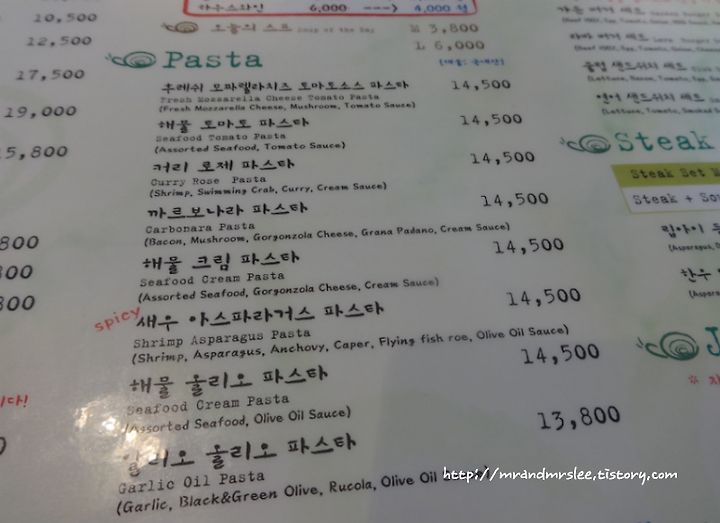 10,500
12,500
17,500
19,000
15,800
,800
800
800
하우스와인 6,000 ---> 4,000 원
오늘의 스프 Soup of the Day M 3,800
L 6,000
Pasta
후레쉬 모짜렐라치즈 토마토소스 파스타 14,500
Fresh Mozzarella Cheese Tomato Pasta
(Fresh Mozzarella Cheese, Mushroom, Tomato Sauce)
해물 토마토 파스타 14,500
Seafood Tomato Pasta
(Assorted Seafood, Tomato Sauce)
커리 로제 파스타 14,500
Curry Rose Pasta
(Shrimp, Swimming Crab, Curry, Cream Sauce)
까르보나라 파스타 14,500
Carbonara Pasta
(Bacon, Mushroom, Gorgonzola Cheese, Grana Padano, Cream Sauce)
해물 크림 파스타 14,500
Seafood Cream Pasta
(Assorted Seafood, Gorgonzola Cheese, Cream Sauce)
spicy 새우 아스파라거스 파스타 14,500
Shrimp Asparagus Pasta
(Shrimp, Asparagus, Anchovy, Caper, Flying fish roe, Olive Oil Sauce)
해물 올리오 파스타 14,500
Seafood Cream Pasta
(Assorted Seafood, Olive Oil Sauce)
알리오 올리오 파스타 13,800
Garlic Oil Pasta
(Garlic, Black&Green Olive, Rucola, Olive Oil
연어 샌드위치 세트
Steak
Steak Set
Steak + Sou
립아이
(Asparagus,
한우
J
니다!
http://mrandmrslee.tistory.com